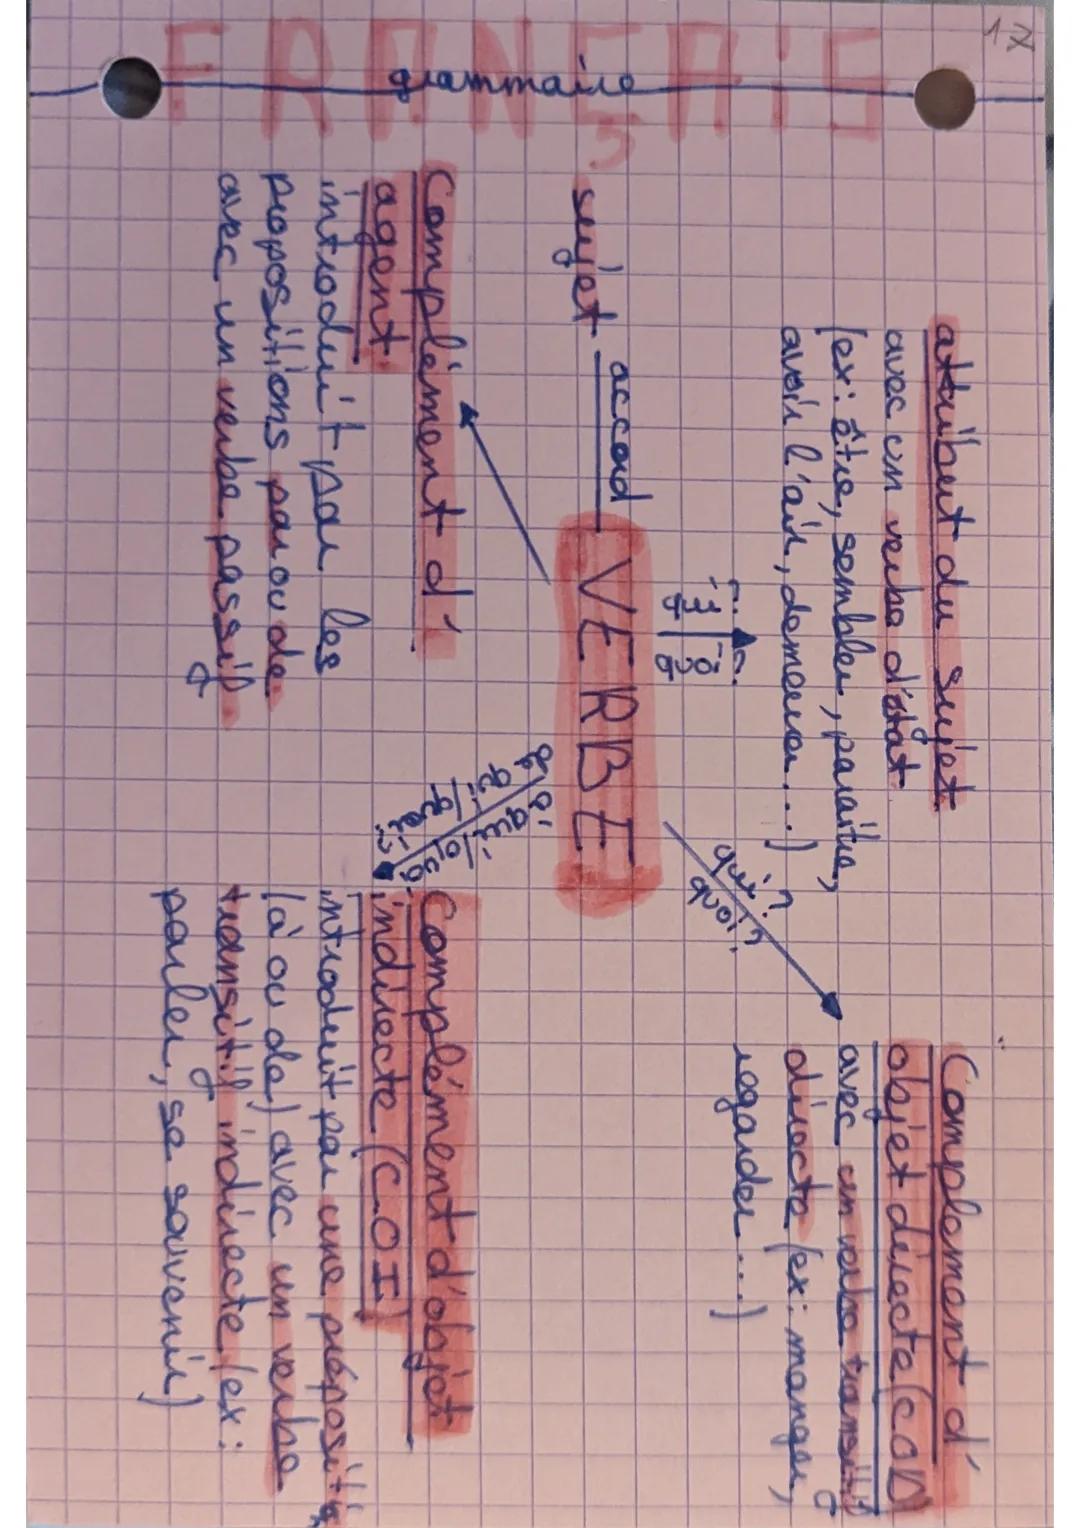 FRANÇAIS
grammaire
17
attribut du sujet
avec un verbe d'état
(ex: être, sembler, paraitre,
avoir l'air, demeurer...)
Complément d'
objet directe (COD
avec un verbe transitif
directe (ex: manger,
regarder...)
qui?
quoi?
sujet
accord
VERBE
à qui
de qui
quoi
Complément d'
agent
introduit par les
propositions par ou de
avec un verbe passif
Complément d'objet
indirecte (C.O.I)
introduit par une préposition
(à ou de) avec un verbe
transitif indirecte (ex:
parler, se souvenir)